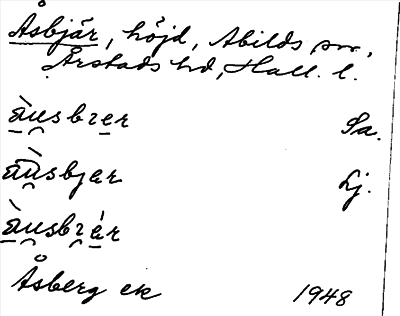 Åsbjär, höjd, Abilds sn.,
Årstads hd, Hall. l.
àu̯sbɪer Sa.
àu̯sbjer Lj.
àu̯sbɪér
Åsberg ek 1948